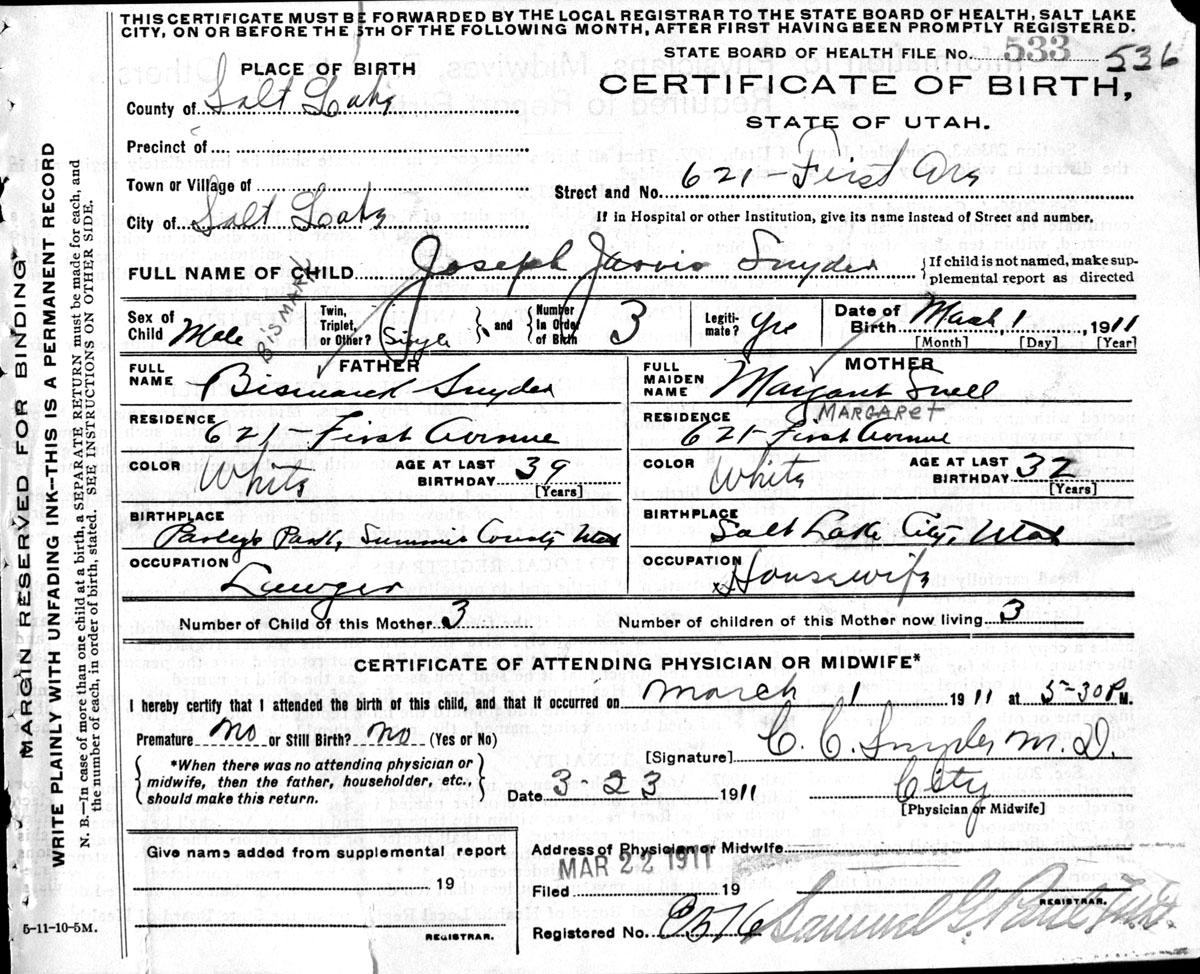 THIS CERTIFICATE MUST BE FORWARDED BY THE LOCAL REGISTRAR TO THE STATE BOARD OF HEALTH, SALT LAKE
CITY, ON OR BEFORE THE 5TH OF THE FOLLOWING MONTH, AFTER FIRST HAVING BEEN PROMPTLY REGISTERED.
STATE BOARD OF HEALTH FILE No. 533 536
PLACE OF BIRTH
CERTIFICATE OF BIRTH,
County of Salt Lake
STATE OF UTAH.
Precinct of
Town or Village of
Street and No. 621 - First Ave
City of Salt Lake
If in Hospital or other Institution, give its name instead of Street and number.
FULL NAME OF CHILD Joseph Jarvis Snyder {If child is not named, make sup-
plemental report as directed
Sex of Child Male
Twin, Triplet, or Other? Single } and { Number In Order of Birth 3
Legiti-mate? Yes
Date of Birth March 1, 1911
[Month] [Day] [Year]
BISMARK
FATHER
FULL NAME Bismarck Snyder
RESIDENCE 621 - First Avenue
COLOR White AGE AT LAST BIRTHDAY 39 [Years]
BIRTHPLACE Parley's Park, Summit County Utah
OCCUPATION Lawyer
MOTHER
FULL MAIDEN NAME Margaret Snell
MARGARET
RESIDENCE 621 - First Avenue
COLOR White AGE AT LAST BIRTHDAY 32 [Years]
BIRTHPLACE Salt Lake City, Utah
OCCUPATION Housewife
Number of Child of this Mother 3 Number of children of this Mother now living 3
CERTIFICATE OF ATTENDING PHYSICIAN OR MIDWIFE*
I hereby certify that I attended the birth of this child, and that it occurred on March 1 1911 at 5-30 P M.
Premature No or Still Birth? No (Yes or No)
[Signature] C. C. Snyder M.D.
{ *When there was no attending physician or
midwife, then the father, householder, etc.,
should make this return. }
Date 3-23 1911 City
[Physician or Midwife]
Give name added from supplemental report
19
REGISTRAR.
Address of Physician or Midwife
Filed MAR 22 1911 19
REGISTRAR.
Registered No.
5-11-10-5M.
MARGIN RESERVED FOR BINDING
WRITE PLAINLY WITH UNFADING INK—THIS IS A PERMANENT RECORD
N. B.—In case of more than one child at a birth, a SEPARATE RETURN must be made for each, and
the number of each, in order of birth, stated. SEE INSTRUCTIONS ON OTHER SIDE.